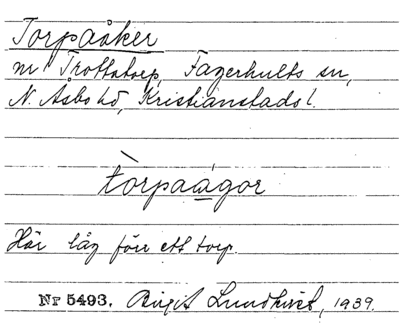 Torpaåker
nr Trottatorp, Fagerhults sn,
N. Åsbo hd, Kristianstads l.
tòrpaágor
Här låg förr ett torp.
Nr 5493. Birgit Lundkvist, 1939.